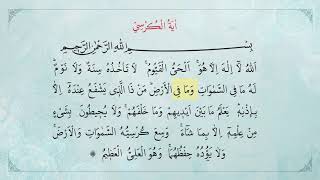 آيَةُ الْكُرْسِيِّ
بِسْمِ اللهِ الرَّحْمٰنِ الرَّحِيْمِ
اَللهُ لَا اِلٰهَ اِلَّا هُوَ ۚ اَلْحَيُّ الْقَيُّوْمُ ۚ لَا تَأْخُذُهُ سِنَةٌ وَلَا نَوْمٌ ۚ
لَهُ مَا فِي السَّمٰوَاتِ وَمَا فِي الْاَرْضِ ۗ مَنْ ذَا الَّذِي يَشْفَعُ عِنْدَهُ اِلَّا
بِاِذْنِهِ ۚ يَعْلَمُ مَا بَيْنَ اَيْدِيهِمْ وَمَا خَلْفَهُمْ ۚ وَلَا يُحِيطُونَ بِشَيْءٍ
مِنْ عِلْمِهِ اِلَّا بِمَا شَاءَ ۚ وَسِعَ كُرْسِيُّهُ السَّمٰوَاتِ وَالْاَرْضَ ۚ
وَلَا يَؤُدُهُ حِفْظُهُمَا ۚ وَهُوَ الْعَلِيُّ الْعَظِيمُ